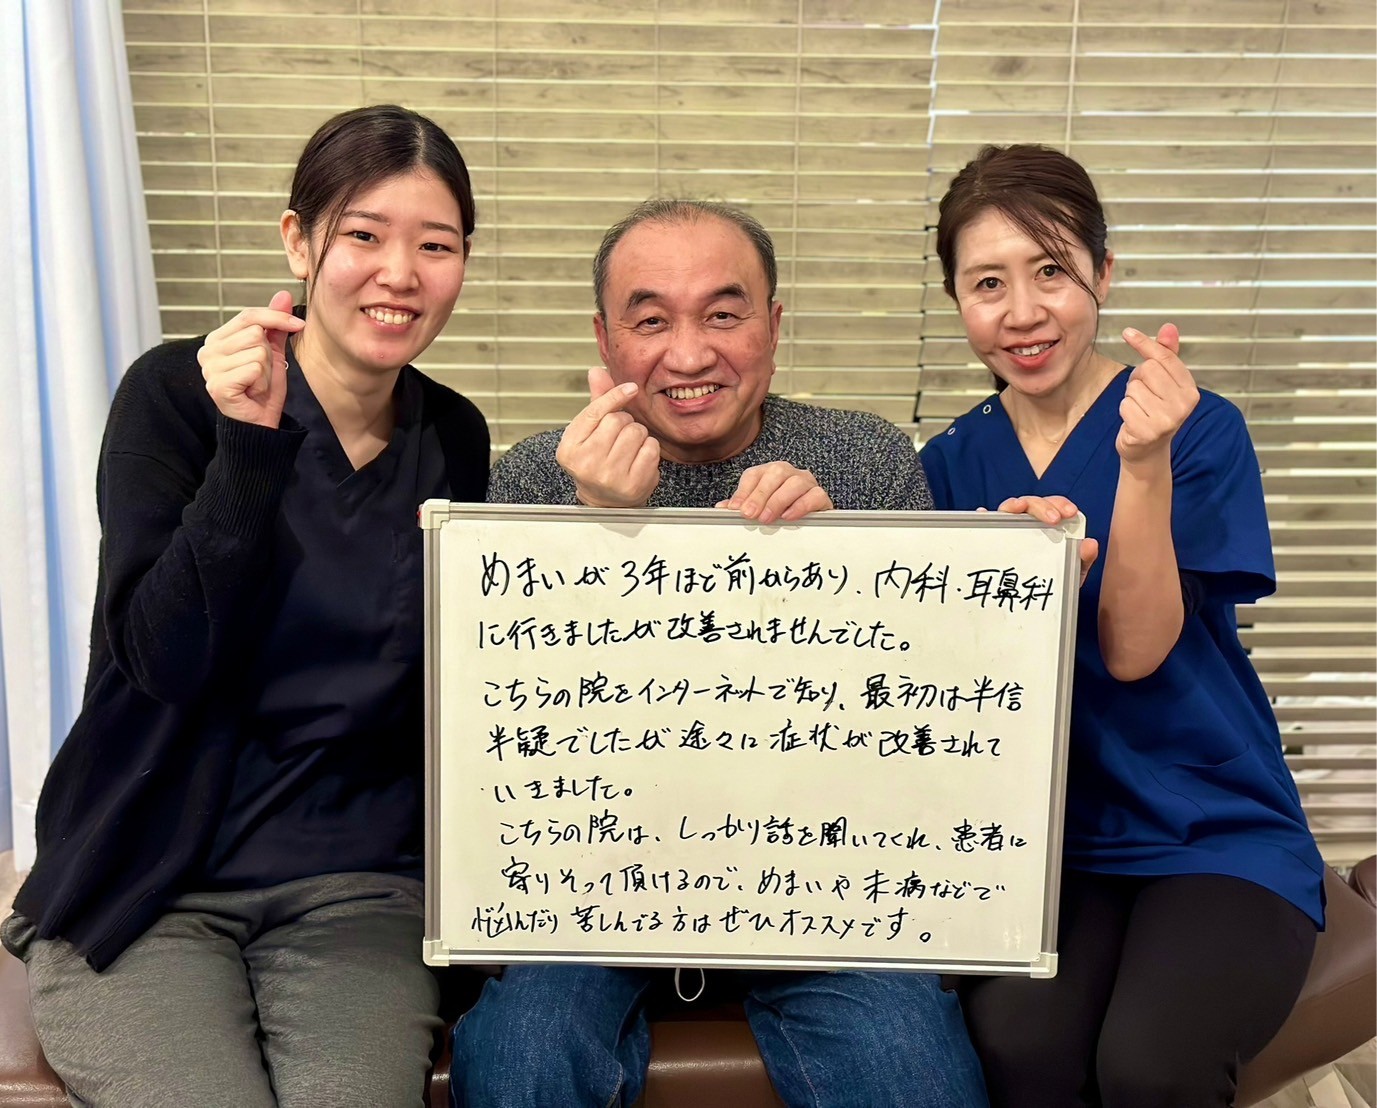 めまいが3年ほど前からあり、内科・耳鼻科
に行きましたが改善されませんでした。
こちらの院をインターネットで知り、最初は半信
半疑でしたが途々に症状が改善されて
いきました。
こちらの院は、しっかり話を聞いてくれ、患者に
寄りそって頂けるので、めまいや未病などで
悩んだり苦しんでる方はぜひオススメです。